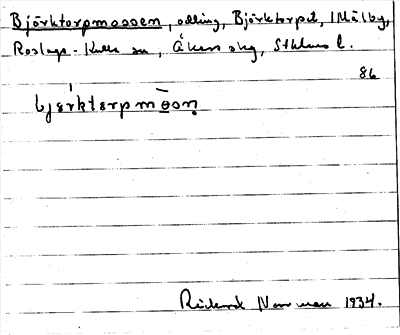 Björktorpmossen, odling, Björktorpet, 1 Målby,
Roslags-Kulla sn, Åkers skg, Sthlms l.
86
bjœrktɛrpmɵ̀sɔn̥
Rickard Norrman 1934.